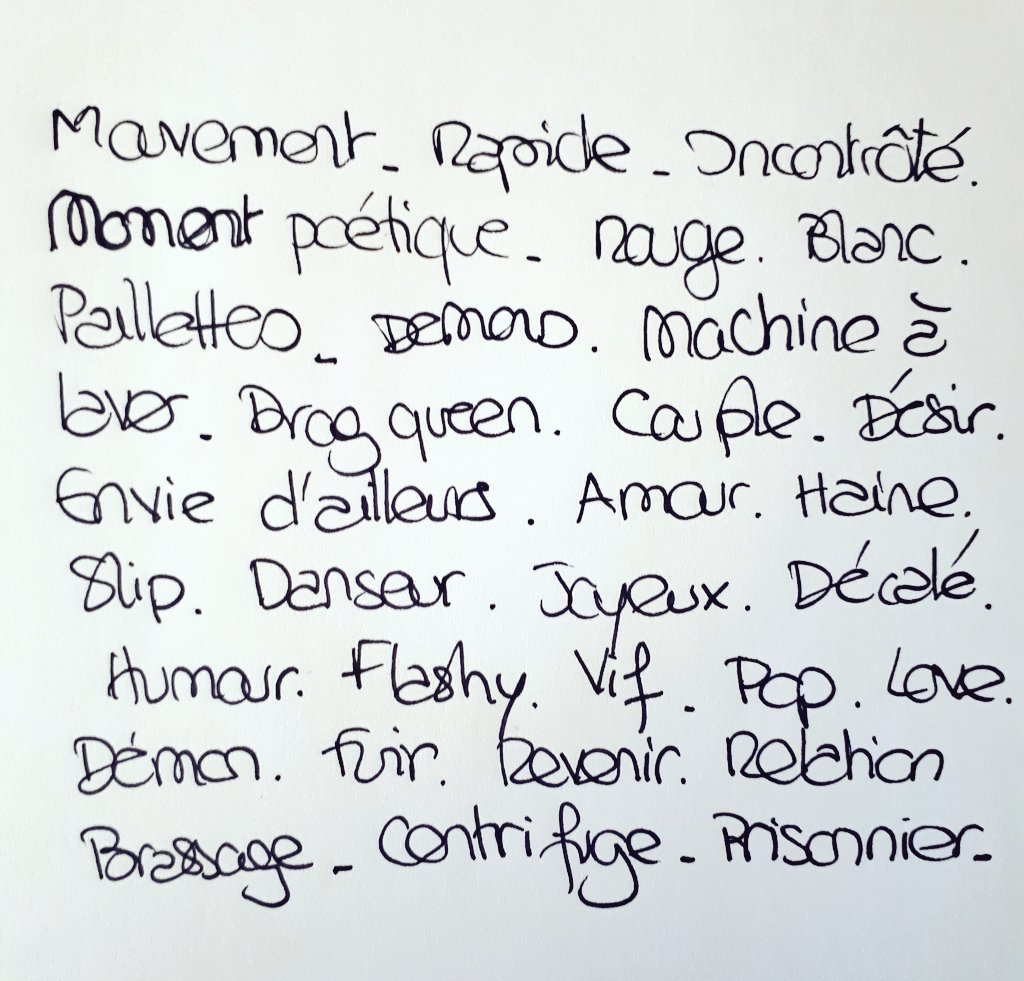 Mouvement - Rapide - Incontrôlé.
Moment poétique - Rouge. Blanc.
Paillettes - Demons. Machine à
laver. Drag queen. Couple. Désir.
Envie d'ailleurs. Amour. Haine.
Slip. Danseur. Joyeux. Décalé.
Humour. Flashy. Vif. Pop. Love.
Démon. Fuir. Revenir. Relation
Brassage - Centrifuge - Prisonnier -